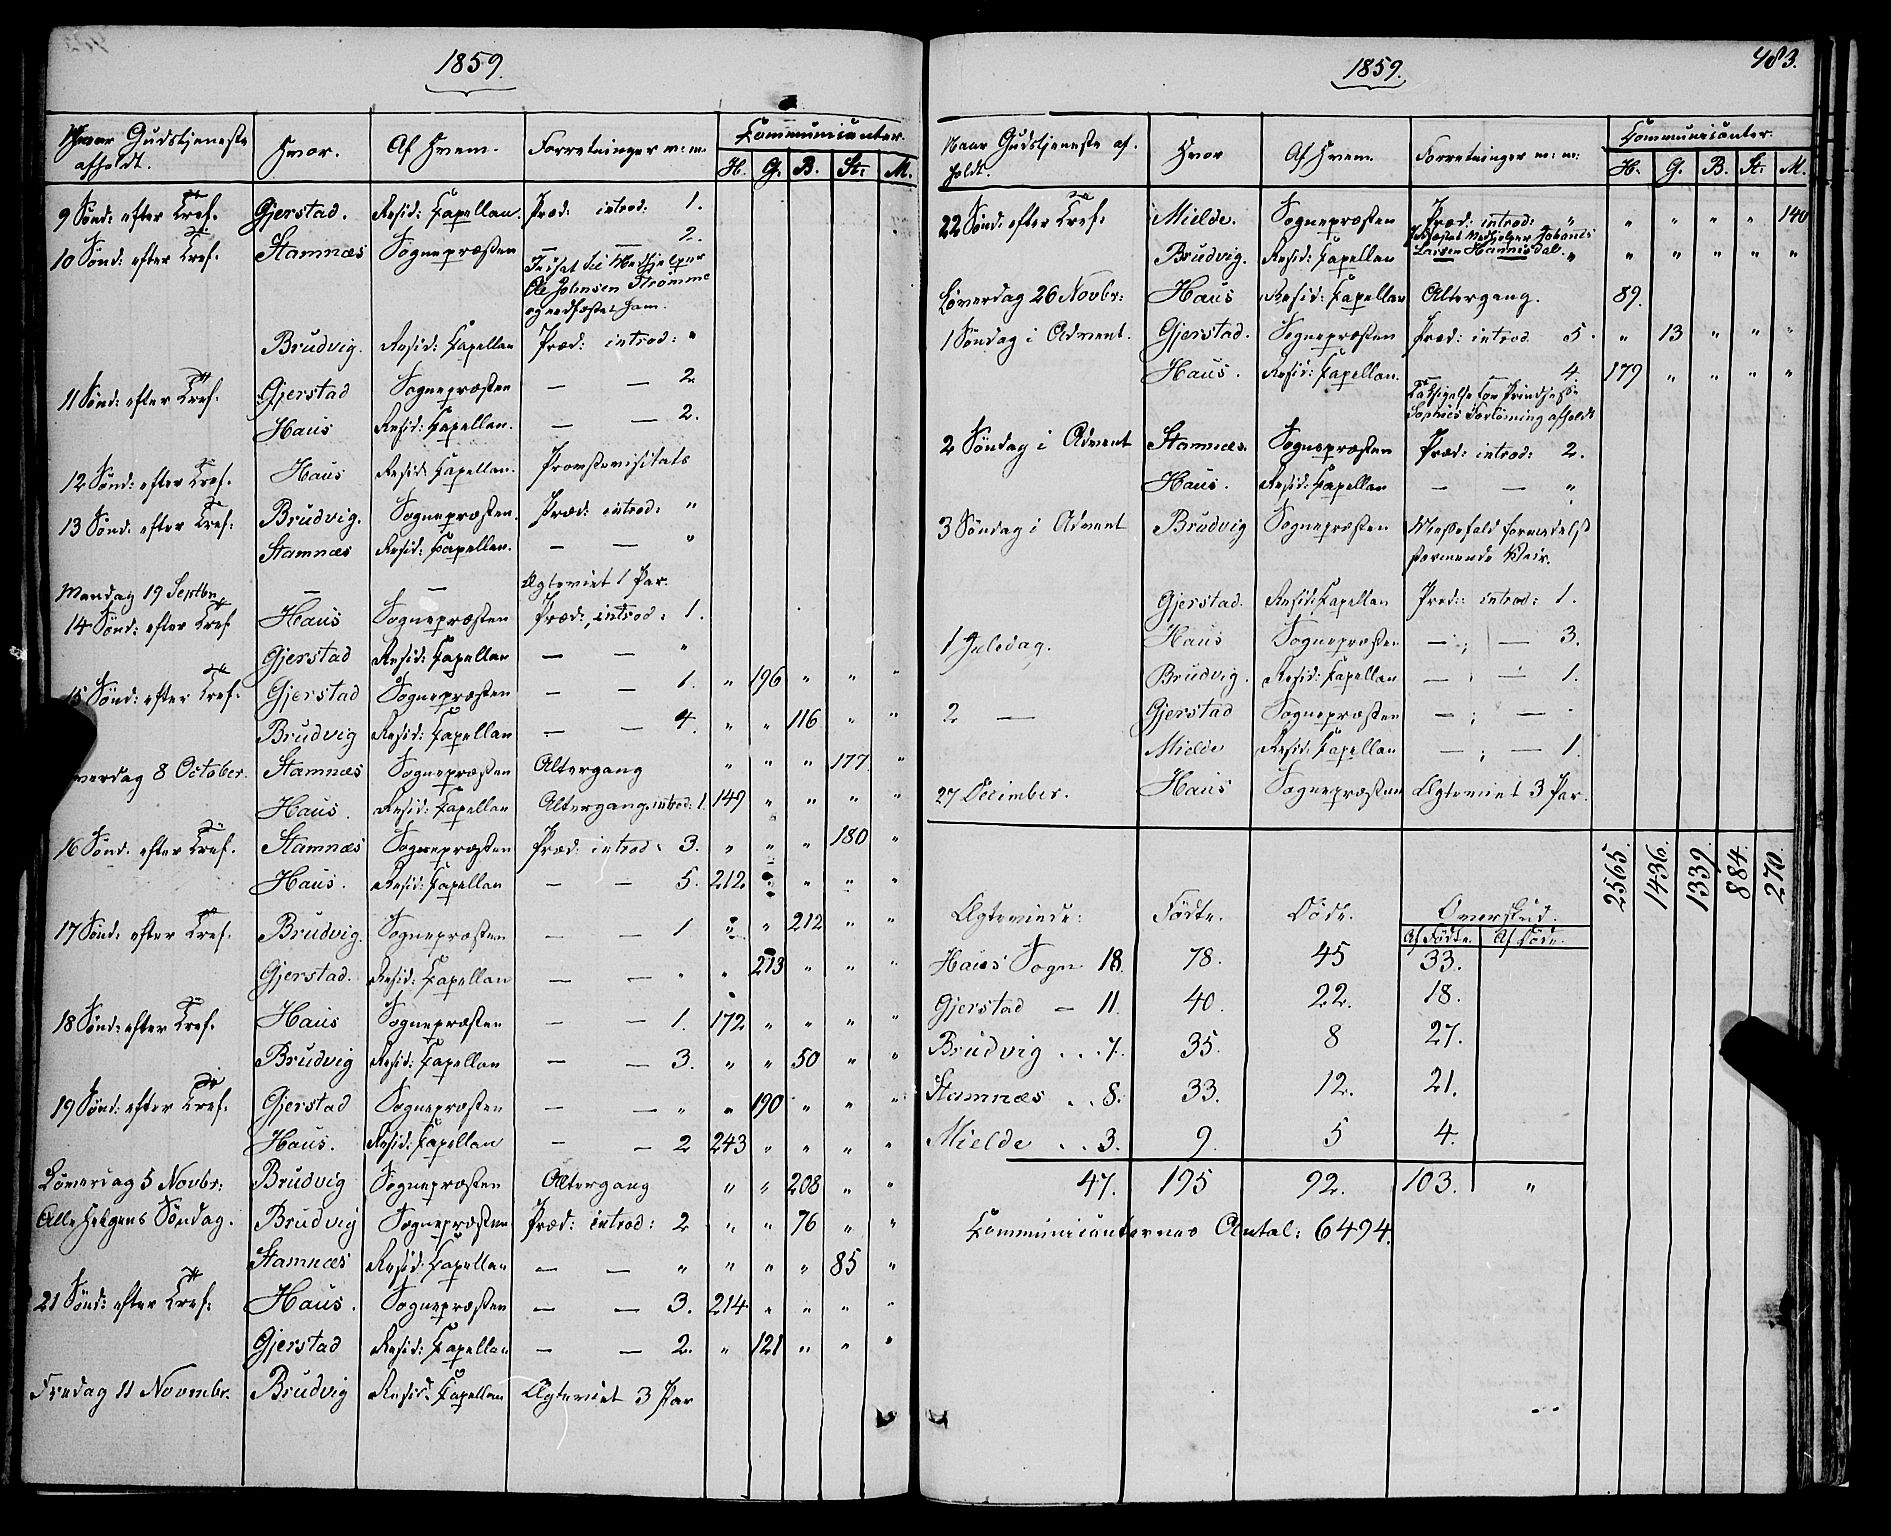 1859.
Naar Gudstjeneste afholdt. Hvor. Af Hvem. Forretninger m: m: Communicanter.
H. G. B. St: M.
9 Sønd: efter Tref. Gjerstad. Resid: Capellan. Præd: introd: 1.
10 Sønd: efter Tref. Stamnæs Sognepræsten — — 2.
Indsat til Medhjelper
Ole Johnsen Strømme
og eedfæstet ham.
Brudvig. Resid: Capellan Præd: introd: "
11 Sønd: efter Tref. Gjerstad Sognepræsten — — 2.
Haus Resid: Capellan. — — 2.
12 Sønd: efter Tref. Haus Resid: Capellan. Provstevisitats
13 Sønd: efter Tref: Brudvig. Sognepræsten. Præd: introd: "
Stamnæs Resid: Capellan. — — "
Mandag 19 Septbr. — — Ægteviet 1 Par.
14 Sønd: efter Tref Haus Sognepræsten Præd:, introd: 1.
Gjerstad Resid: Capellan — — "
15 Sønd: efter Tref. Gjerstad Sognepræsten — — 1. " 196 " " "
Brudvig Resid: Capellan — — 4. " " 116 " "
verdag 8 October. Stamnæs Sognepræsten Altergang " " " 177. "
Haus. Resid: Capellan Altergang. introd: 1. 149 " " " "
16 Sønd. efter Tref. Stamnæs Sognepræsten Præd: introd: 3. " " " 180 "
Haus. Resid: Capellan — — 5. 212 " " " "
17 Sønd: efter Tref. Brudvig. Sognepræsten — — 1 " " 212 " "
Gjerstad. Resid: Capellan — — " " 213 " " "
18 Sønd: efter Tref. Haus Sognepræsten — — 1. 172 " " " "
Brudvig Resid: Capellan — — 3. " " 50 " "
19 Sønd: efter Tref. Gjerstad Sognepræsten — — " " 190 " " "
Haus. Resid: Capellan — — 2 243 " " " "
Løverdag 5 Novbr: Brudvig Sognepræsten Altergang " " 208 " "
Alle Helgens Søndag. Brudvig Sognepræsten Præd: introd: 2 " " 76 " "
Stamnæs Resid: Capellan — — " " " " 85 "
21 Sønd: efter Tref: Haus. Sognepræsten — — 3. 214 " " " "
Gjerstad Resid: Capellan — — 2. " 121 " " "
Fredag 11 Novmbr. Brudvig Resid: Capellan Ægteviet 3 Par
483.
1859.
Naar Gudstjeneste afholdt. Hvor Af Hvem. Forretninger m: m: Communicanter.
H. G. B. St: M.
22 Sønd: efter Tref: Mielde. Sognepræsten Præd: introd: " " " " " 140
Indsat Medhjelper Johannes
Larsen Hannisdal.
Brudvig. Resid: Capellan " " " " " "
Løverdag 26 Novbr: Haus Resid: Capellan Altergang. 89.
1 Søndag i Advent. Gjerstad. Sognepræsten Præd: introd 5. " 13 " " "
Haus. Resid: Capellan. — — 4. 179 " " " "
Taksigelse for Prindsesse
Sophies Forløsning afholdt
2 Søndag i Advent Stamnæs. Sognepræsten Præd: introd: 2.
Haus. Resid: Capellan — — "
3 Søndag i Advent Brudvig Sognepræsten Messefald formedelst
stormende Veir.
Gjerstad. Resid: Capellan Præd: introd: 1.
1 Juledag. Haus Sognepræsten — ; — 3.
Brudvig. Resid: Capellan — — 1.
2 — Gjerstad Sognepræsten — ; — "
Mielde Resid: Capellan — ; — 1.
27 December. Haus Sognepræsten Ægteviet 3 Par.
2565. 1436. 1339. 884. 270.
Ægteviede: Fødte. Døde. Overskud.
Af Fødte. Af Døde.
Haus Sogn 18. 78. 45 33.
Gjerstad — 11. 40. 22. 18.
Brudvig . . 7. 35. 8 27.
Stamnæs . . 8. 33. 12. 21.
Mielde . . 3. 9. 5 4.
47. 195 92. 103. "
Communicanternes Antal: 6494.